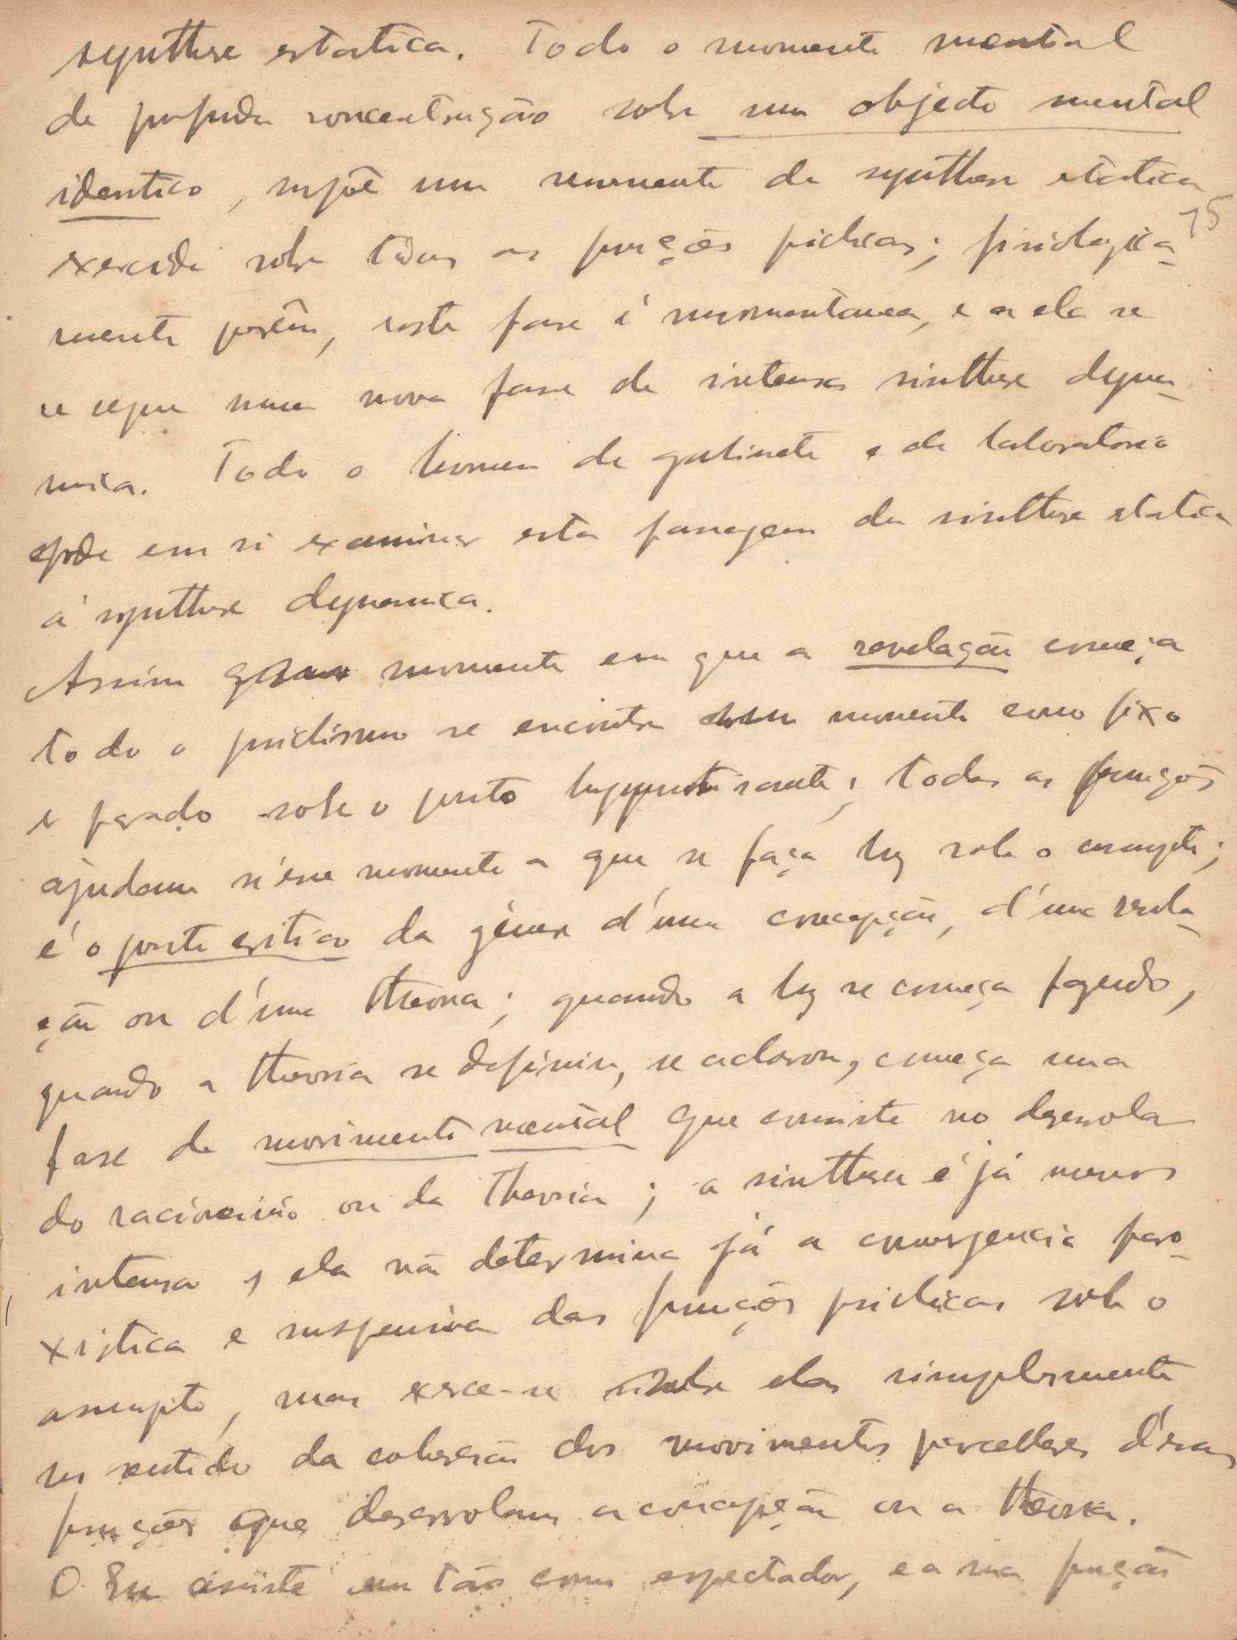 synthese estatica. Todo o momento mental
de profunda concentração sobre um objecto mental
identico, supõe um momento de synthese estatica
75
exercida sobre tôdas as funções psichicas; fisiologica-
mente porêm, esta fase é momentanea, e a ela se
se segue uma nova fase de intensa sinthese dyna-
mica. Todo o homem de gabinete e de laboratorio
pode em si examinar esta passagem da sinthese statica
á synthese dynamica.
Assim momento em que a revelação começa
todo o psichismo se encontra momento como fixo
e parado sobre o ponto hypnotisante; todas as funções
ajudam n'esse momento a que se faça luz sobre o assumpto;
é o ponto critico da génese d'uma concepção, d'uma revela-
ção ou d'uma theoria; quando a luz se começa fazendo,
quando a theoria se definiu, se aclarou, começa uma
fase de movimento mental que consiste no desenrolar
do raciocinio ou da theoria; a sinthese é já menos
intensa, ela não determina já a convergencia paro-
xistica e suspensiva das funções psichicas sobre o
assumpto, mas exerce-se sobre elas simplesmente
no sentido da cohesão dos movimentos parcellares d'essas
funções que desenrolam a concepção ou a theoria.
O Eu assiste então como espectador, e a sua função